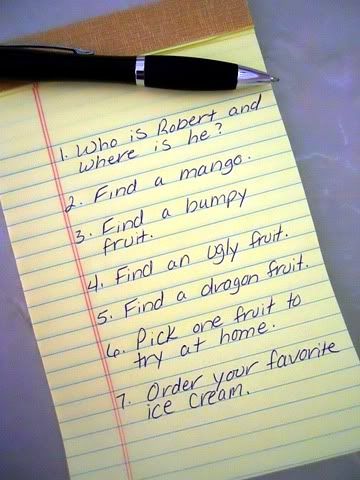 1. Who is Robert and
where is he?
2. Find a mango.
3. Find a bumpy
fruit.
4. Find an ugly fruit.
5. Find a dragon fruit.
6. Pick one fruit to
try at home.
7. Order your favorite
ice cream.